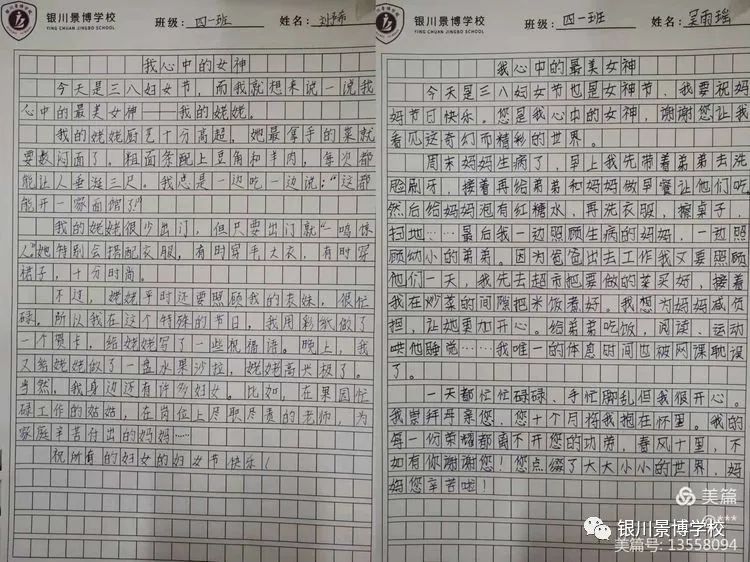 银川景博学校
YING CHUAN JINGBO SCHOOL
班级：四一班 姓名：刘
我心中的女神
今天是三八妇女节，而我就想来说一说我
心中的最美女神——我的姥姥。
我的姥姥厨艺十分高超，她最拿手的菜就
要数闷面了。粗面条配上豆角和羊肉，每次都
能让人垂涎三尺。我总是一边吃一边说：“这都
能开一家面馆了！”
我的姥姥很少出门，但只要出门就“一鸣惊
人”她特别会搭配衣服，有时穿毛大衣，有时穿
裙子，十分时尚。
不过，姥姥平时还要照顾我的表妹，很忙
碌。所以我在这个特殊的节日，我用彩纸做了
一个贺卡，给姥姥写了一些祝福语。晚上，我
又给姥姥做了一盘水果沙拉，姥姥高兴极了。
当然，我身边还有许多妇女。比如，在果园忙
碌工作的姑姑，在岗位上尽职尽责的老师，为
家庭辛苦付出的妈妈……
祝所有的妇女的妇女节快乐！
银川景博学校
YING CHUAN JINGBO SCHOOL
班级：四一班 姓名：吴雨瑶
我心中的最美女神
今天是三八妇女节也是女神节，我要祝妈
妈节日快乐。您是我心中的女神，谢谢您让我
看见这奇幻而精彩的世界。
周末妈妈生病了，早上我先带着弟弟去洗
脸刷牙，接着再给弟弟和妈妈做早餐让他们吃。
然后给妈妈泡有红糖水，再洗衣服，擦桌子，
扫地……最后我一边照顾生病的妈妈，一边照
顾幼小的弟弟。因为爸爸出去工作我又要照顾
他们一天，我先去超市把要做的菜买好，接着
我在炒菜的间隙把米饭煮好。我想为妈妈减负
担，让她更加开心。给弟弟吃饭，阅读、运动
哄他睡觉……我唯一的休息时间也被网课耽误
了。
一天都忙忙碌碌、手忙脚乱但我很开心。
我崇拜母亲您，您十个月将我抱在怀里。我的
每一份荣耀都离不开您的功劳，春风十里，不
如有你谢谢您！您点缀了大大小小的世界，妈
妈您辛苦啦！
美篇
@***
银川景博学校
美篇号：13558094